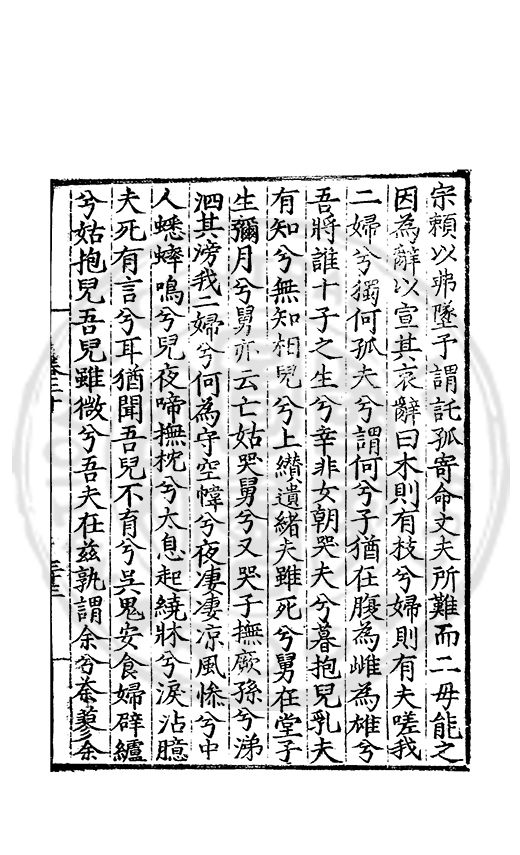 宗賴以弗墜予謂託孤寄命丈夫所難而二母能之
因為辭以宣其哀辭曰木則有枝兮婦則有夫嗟我
二婦兮獨何孤夫兮謂何兮子猶在腹為雌為雄兮
吾將誰十子之生兮幸非女朝哭夫兮暮抱兒乳夫
有知兮無知相兒兮上纉遺緒夫雖死兮舅在堂子
生彌月兮舅亦云亡姑哭舅兮又哭子撫厥孫兮涕
泗其滂我二婦兮何為守空幃兮夜凄凄凉風慘兮中
人蟋蟀鳴兮兒夜啼撫枕兮太息起繞牀兮淚沾臆
夫死有言兮耳猶聞吾兒不育兮吳鬼安食婦辟纑
兮姑抱兒吾兒雖微兮吾夫在茲孰謂余兮荼蓼余
卷三十
三十三